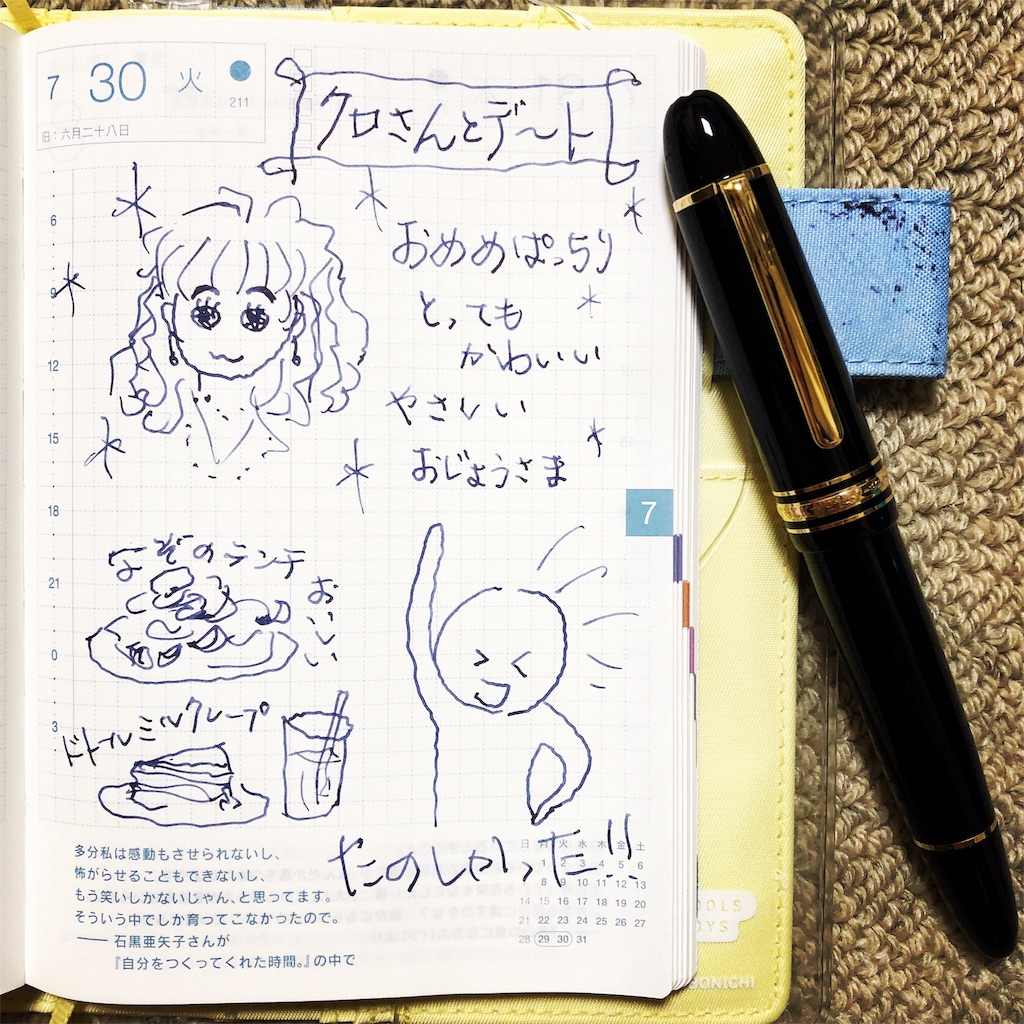 7 30 火
211
旧:六月二十八日
クロさんとデート
6
9
12
15
18
21
0
3
おめめぱっちり
とっても
かわいい
やさしい
おじょうさま
7
なぞのランチ
おいしい
ドトールミルクレープ
たのしかった!!
多分私は感動もさせられないし、
怖がらせることもできないし、
もう笑いしかないじゃん、と思ってます。
そういう中でしか育ってこなかったので。
── 石黒亜矢子さんが
『自分をつくってくれた時間。』の中で
日 月 火 水 木 金 土
1 2 3 4 5 6
7 8 9 10 11 12 13
14 15 16 17 18 19 20
21 22 23 24 25 26 27
28 29 30 31